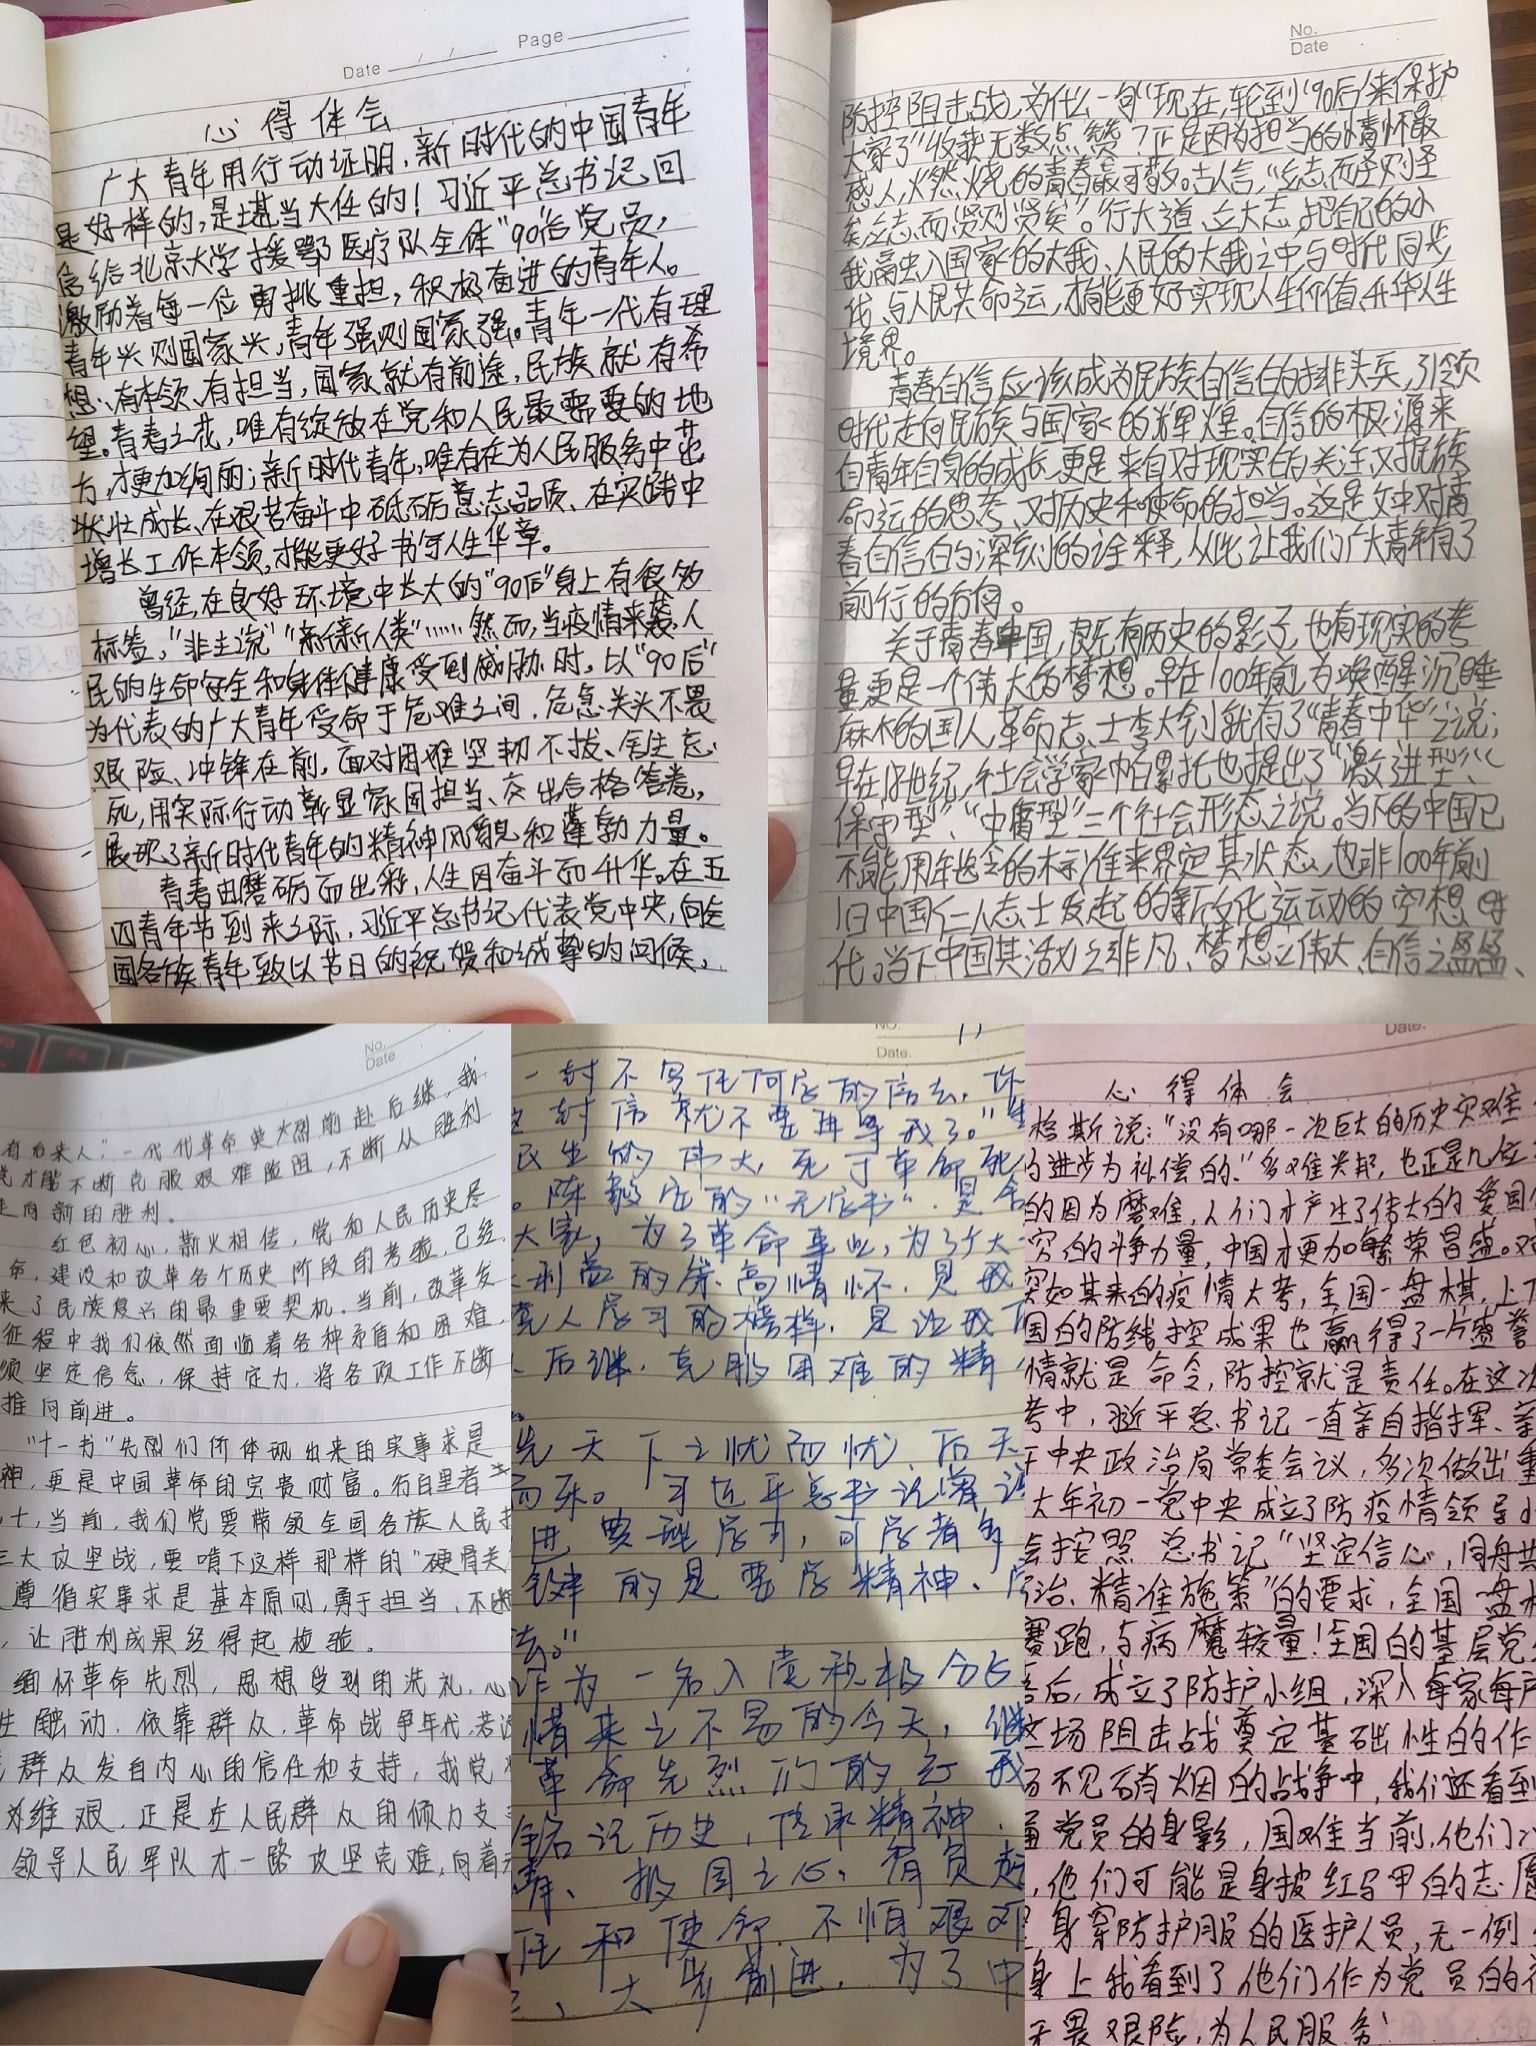 Date / / Page
心得体会
广大青年用行动证明,新时代的中国青年
是好样的,是堪当大任的!习近平总书记回
信给北京大学援鄂医疗队全体“90后党员,
激励着每一位勇挑重担,积极奋进的青年人。
青年兴则国家兴,青年强则国家强。青年一代有理
想、有本领、有担当,国家就有前途,民族就有希
望。青春之花,唯有绽放在党和人民最需要的地
方,才更加绚丽;新时代青年,唯有在为人民服务中茁
状壮成长、在艰苦奋斗中砥砺意志品质、在实践中
增长工作本领,才能更好书写人生华章。
曾经,在良好环境中长大的“90后”身上有很多
标签,“非主流”“新新人类”……然而,当疫情来袭、人
民的生命安全和身体健康受到威胁时,以“90后”
为代表的广大青年受命于危难之间,危急关头不畏
艰险、冲锋在前,面对困难坚韧不拔、舍生忘
死,用实际行动彰显家国担当、交出合格答卷,
展现了新时代青年的精神风貌和蓬勃力量。
青春由磨砺而出彩,人生因奋斗而升华。在五
四青年节到来之际,习近平总书记代表党中央,向全
国各族青年致以节日的祝贺和诚挚的问候,
No.
Date
防控阻击战,为什么一句“现在,轮到‘90后’来保护
大家了”收获无数点赞?正是因为担当的情怀最
感人,火燃烧的青春最可敬。古人言,“立志而圣则圣
矣,立志而贤则贤矣”。行大道、立大志,把自己的小
我融入国家的大我、人民的大我之中,与时代同步
伐、与人民共命运,才能更好实现人生价值、升华人生
境界。
青春自信应该成为民族自信的排头兵,引领
时代走向民族与国家的辉煌。自信的根源来
自青年自身的成长,更是来自对现实的关注、对民族
命运的思考、对历史和使命的担当。这是文中对青
春自信的深刻的诠释,从此让我们广大青年有了
前行的方向。
关于青春中国,既有历史的影子,也有现实的考
量更是一个伟大的梦想。早在100年前,为唤醒沉睡
麻木的国人,革命志士李大钊就有了“青春中华”之说;
早在18世纪,社会学家帕累托也提出了“激进型”、“
保守型”、“中庸型”三个社会形态之说。当下的中国已
不能用年迈的标准来界定其状态,也非100年前
旧中国仁人志士发起的新文化运动的空想时
代。当下中国其活力之非凡、梦想之伟大、自信之盈盈、
No.
Date
有自来人”,一代代革命英火烈前赴后继,我
党才能不断克服艰难险阻,不断从胜利
走向新的胜利。
红色初心,薪火相传,党和人民历史尽
命,建设和改革各个历史阶段的考验,已经
来了民族复兴的最重要契机,当前,改革发
征程中我们依然面临着各种矛盾和困难,
须坚定信念,保持定力,将各项工作不断
推向前进。
“十一书”先烈们所体现出来的实事求是
神,更是中国革命的宝贵财富。行百里者
十,当前,我们党要带领全国各族人民打
三大攻坚战,要啃下这样那样的“硬骨关
遵循实事求是基本原则,勇于担当,不断
,让胜利成果经得起检验。
缅怀革命先烈,思想受到的洗礼,心
生触动,依靠群众,革命战争年代,若没
群众发自内心的信任和支持,我党
对维艰,正是在人民群众的倾力支
领导人民军队才一路攻坚克难,向着
NO.
Date.
一封不写任何字的信去,你
封信就不要再等我了。”生
民生的伟大,死于革命死
。陈毅安的“无字书”,是舍
大家,为了革命事业,为了个大
利益的崇高情怀,是我
党人学习的榜样,是让我
后继,克服困难的精
先天下之忧而忧、后天
而乐。”习近平总书记曾
进要理学习,可学者
键的是要学精神、学
去。”
作为一名入党积极分子
情来之不易的今天,继
革命先烈们的红
铭记历史,传承精神,
情、报国之心,肩负起
任和使命,不怕艰难
、大步前进,为了中
Date.
心得体会
格斯说:“没有哪一次巨大的历史灾难
的进步为补偿的.”多难兴邦,也正是几位
的因为磨难,人们才产生了伟大的爱国
穷的斗争力量,中国才更加繁荣昌盛。对
突如其来的疫情大考,全国一盘棋,上下
国的防线控成果也赢得了一片盛誉
情就是命令,防控就是责任。在这次
考中,习近平总书记一直亲自指挥、亲
开中央政治局常委会议,多次做出重
大年初一党中央成立了防疫情领导小
会按照总书记“坚定信心,同舟共
防治、精准施策”的要求,全国一盘棋
赛跑,与病魔较量!全国的基层党
后,成立了防护小组,深入每家每户
这场阻击战奠定基础性的作
场不见硝烟的战争中,我们还看到
党员的身影,国难当前,他们
,他们可能是身披红马甲的志愿
身穿防护服的医护人员,无一例
身上我看到了他们作为党员的
无畏艰险,为人民服务!